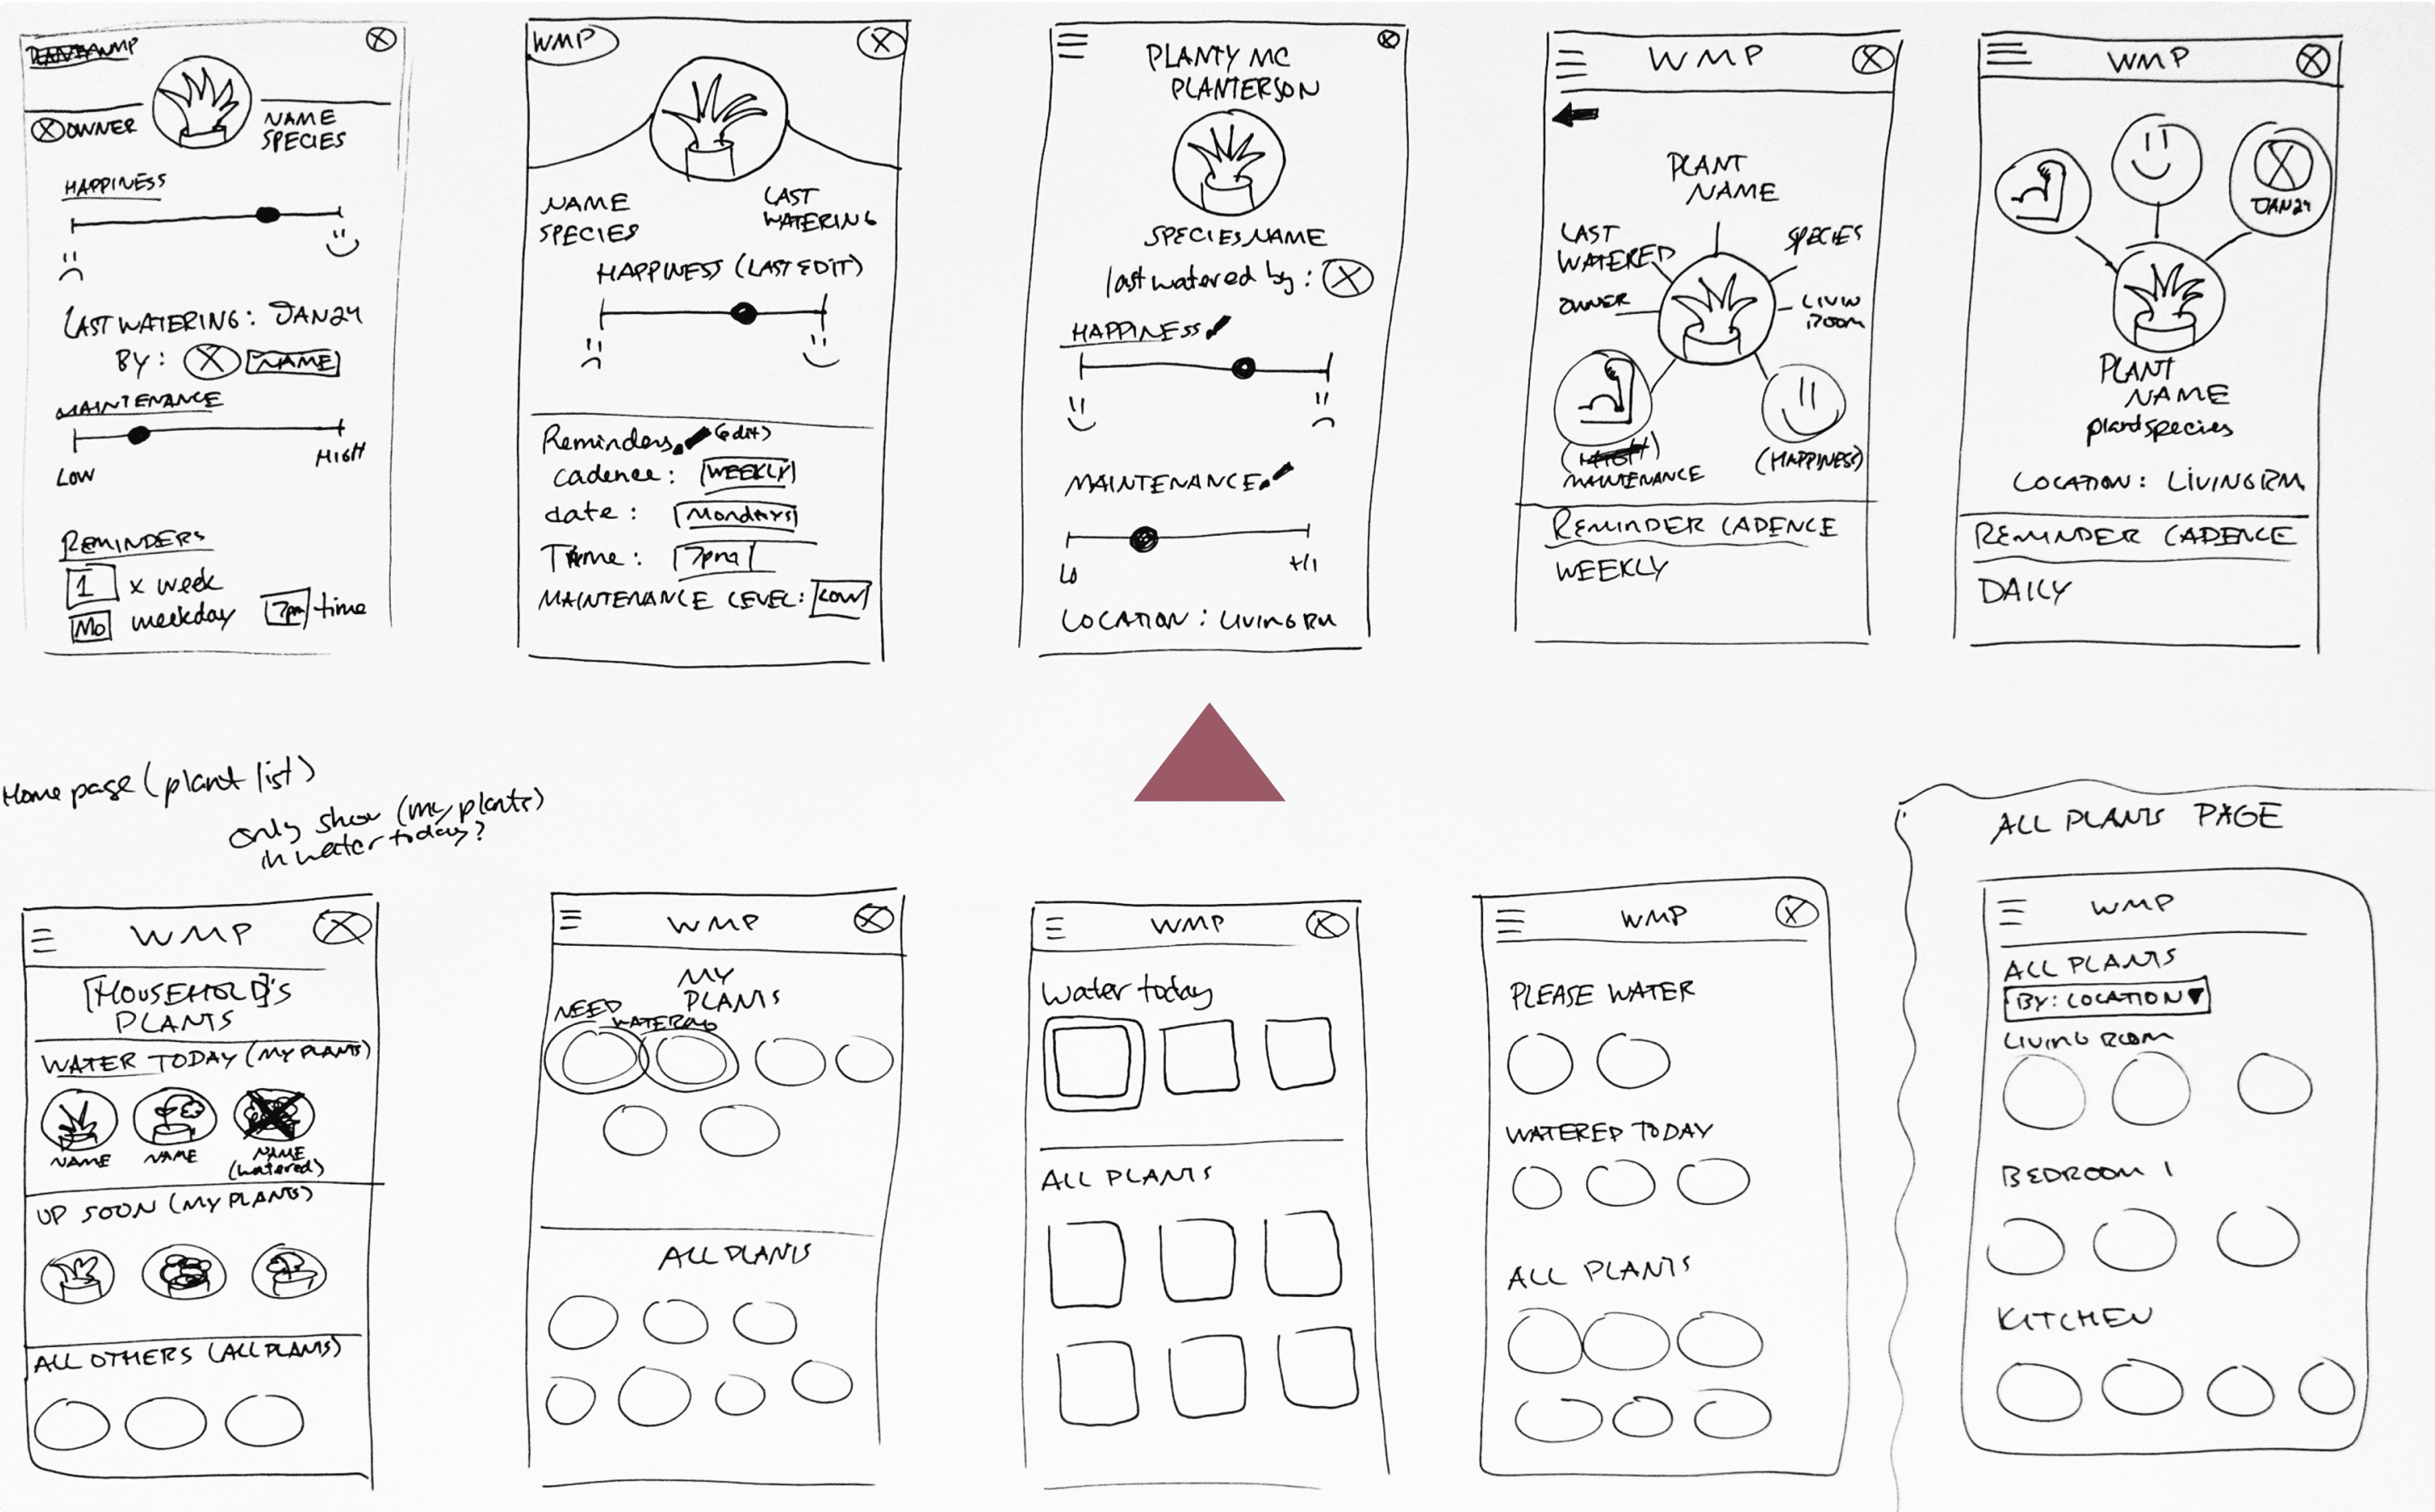 WMP
OWNER
NAME
SPECIES
HAPPINESS
LAST WATERING: JAN24
BY: NAME
MAINTENANCE
LOW HIGH
REMINDERS
1 x week
Mo weekday 7pm time
WMP
NAME
SPECIES
LAST
WATERING
HAPPINESS (LAST EDIT)
Reminders (edit)
cadence: WEEKLY
date: MONDAYS
Time: 7pm
MAINTENANCE LEVEL: LOW
PLANTY MC
PLANTERSON
SPECIES NAME
last watered by:
HAPPINESS
MAINTENANCE
LO HI
LOCATION: LIVING RM
WMP
PLANT
NAME
LAST
WATERED
SPECIES
OWNER
LIVIN
ROOM
MAINTENANCE
(HAPPINESS)
REMINDER CADENCE
WEEKLY
WMP
JAN24
PLANT
NAME
plant species
LOCATION: LIVINGRM
REMINDER CADENCE
DAILY
Home page (plant list)
only show (my plants)
in water today?
WMP
[HOUSEHOLD]'S
PLANTS
WATER TODAY (MY PLANTS)
NAME NAME NAME
(watered)
UP SOON (MY PLANTS)
ALL OTHERS (ALL PLANTS)
WMP
MY
PLANTS
NEED
WATERING
ALL PLANTS
WMP
Water today
ALL PLANTS
WMP
PLEASE WATER
WATERED TODAY
ALL PLANTS
ALL PLANTS PAGE
WMP
ALL PLANTS
BY: LOCATION
LIVING ROOM
BEDROOM 1
KITCHEN